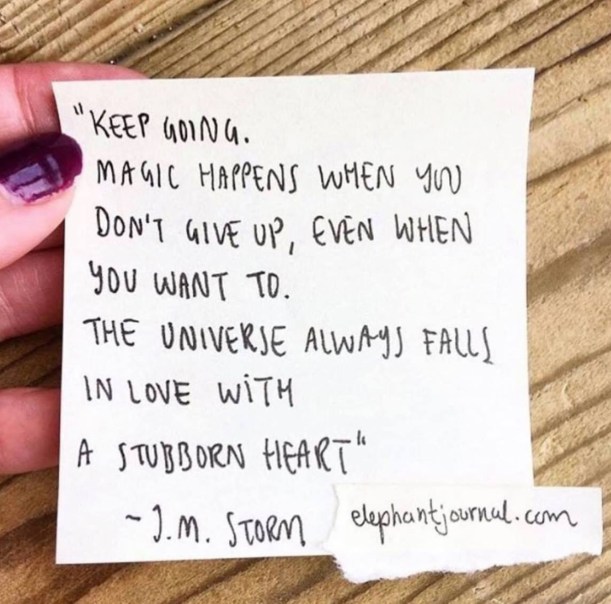 "KEEP GOING.
MAGIC HAPPENS WHEN YOU
DON'T GIVE UP, EVEN WHEN
YOU WANT TO.
THE UNIVERSE ALWAYS FALLS
IN LOVE WITH
A STUBBORN HEART"
~J.M. STORM
elephantjournal.com